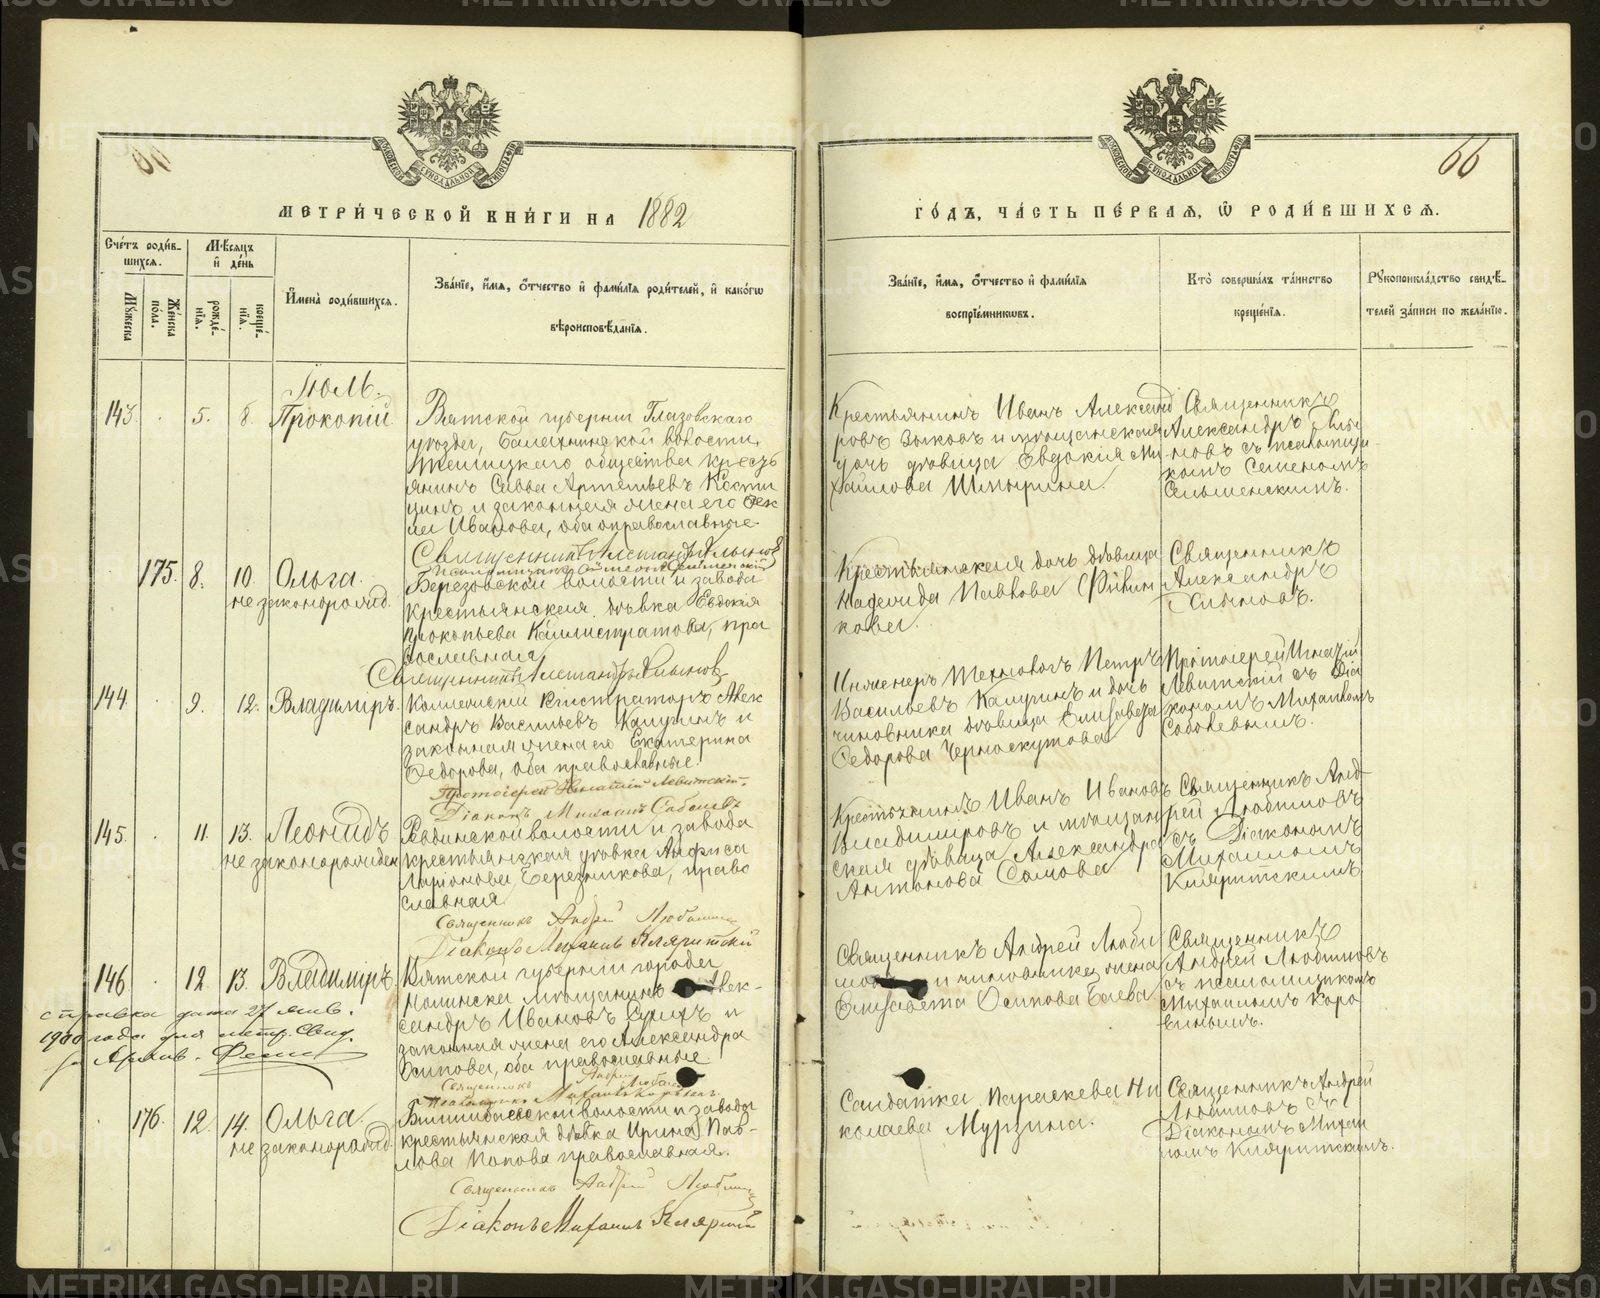 66
МЕТРИ́ЧЕСКОЙ КНИ́ГИ НА 1882
ГО́ДЪ, ЧА́СТЬ ПЕ́РВАЯ, Ѡ РОДИ́ВШИХСЯ.
Сче́тъ роди́в-
шихся.
Му́жеска
пола.
Же́нска
Мѣ́сяцъ
и҆ де́нь
рожде́-
нїѧ.
креще́-
нїѧ.
И҆мена̀ роди́вшихся.
Зва́нїе, и҆́мя, ѻ҆́тчество и҆ фами́лїя роди́телей, и҆ како́гѡ
вѣроисповѣ́данїѧ.
Зва́нїе, и҆́мя, ѻ҆́тчество и҆ фами́лїя
воспрїе́мникѡвъ.
Кто̀ соверша́лъ та́инство
креще́нїѧ.
Рꙋкоприкла́дство свидѣ́-
телей за́писи по жела́нїю.
Іюль.
143. 5. 8. Прокопій
Вятской губерніи Глазовскаго
уѣзда, Балезинской волости,
общества кресть
янинъ Савва Артемьевъ
и законная жена его Фек
ла Иванова, оба православные.
Священникъ Александръ Хлыновъ
Крестьянинъ Иванъ Александ
ровъ Зыковъ и мѣщанская
дочь дѣвица Евдокія Ми
хайлова
Священникъ
Александръ Хлы
новъ съ псаломщи
комъ Семеномъ
175. 8. 10. Ольга.
незаконорожд.
Березовской волости и завода
крестьянская дѣвка Евдокія
Прокопьева Каллистратова, пра
вославная
Священникъ Александръ Хлыновъ
Крестьянская дочь дѣвица
Надежда Павлова
Священникъ
Александръ
Хлыновъ.
144. 9. 12. Владиміръ.
Коллежскій Регистраторъ Алек
сандръ Васильевъ Калугинъ и
законная жена его Екатерина
Ѳедорова, оба православные.
Протоіерей Игнатій Левитскій
Діаконъ Михаилъ
Инженеръ Технологъ Петръ
Васильевъ Калугинъ и дочь
чиновника дѣвица Елисавета
Ѳедорова Черноскутова
Протоіерей Игнатій
Левитскій съ Діа
кономъ Михаиломъ
145. 11. 13. Леонидъ
незаконорожден
волости и завода
крестьянская дѣвка Анфиса
Ларіонова Березникова, право
славная
Священникъ Андрей Любимовъ
Діаконъ Михаилъ Кляритскій
Крестьянинъ Иванъ Ивановъ
Владимировъ и мѣщан
ская дѣвица Александра
Антонова Сомова
Священникъ Анд
рей Любимовъ
съ Діакономъ
Михаиломъ
Кляритскимъ
146 12 13. Владиміръ.
Вятской губерніи города
Нолинска мѣщанинъ Алек-
сандръ Ивановъ и
законная жена его Александра
Осипова, оба православные
Священникъ Андрей Любимовъ
Псаломщикъ Михаилъ
справка дана 27 янв.
1900 года для метр. Свид.
Священникъ Андрей Люби
и чиновника жена
Елисавета Осипова
Священникъ
Андрей Любимовъ
съ псаломщикомъ
Михаиломъ Коро
винымъ.
176. 12 14. Ольга.
незаконорожд.
Билимбаевской волости и завода
крестьянская дѣвка Ирина Пав-
лова Попова православная.
Священникъ Андрей Любимовъ
Діаконъ Михаилъ Кляритскій
Солдатка Параскева Ни
колаева Мурзина.
Священникъ Андрей
Любимовъ съ
Діакономъ Михаи
ломъ Кляритскимъ.
METRIKI.GASO-URAL.RU